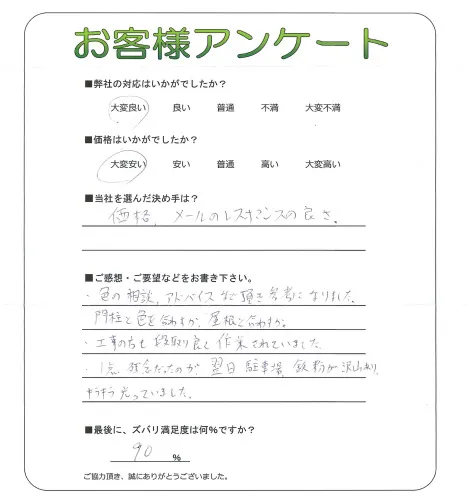 お客様アンケート
■弊社の対応はいかがでしたか？
大変良い 良い 普通 不満 大変不満
■価格はいかがでしたか？
大変安い 安い 普通 高い 大変高い
■当社を選んだ決め手は？
価格、メールのレスポンスの良さ。
■ご感想・ご要望などをお書き下さい。
・色の相談、アドバイスなど頂き参考になりました。
門柱と色を合わすか、屋根と合わすか。
・工事の方も段取り良く作業されていました。
・1点残念だったのが、翌日駐車場、鉄粉が沢山あり、
キラキラ光っていました。
■最後に、ズバリ満足度は何%ですか？
90 %
ご協力頂き、誠にありがとうございました。